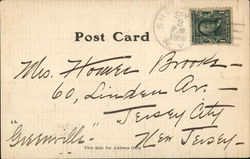 SEP
2
P.M.
Post Card
Mrs. Homer Brooks
60, Linden Av.
Jersey City
Greenville
New Jersey.
This Side for Address Only